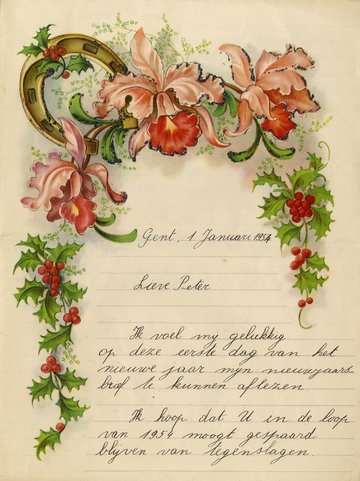 Gent, 1 Januari 1954
Lieve Peter
Ik voel mij gelukkig
op deze eerste dag van het
nieuwe jaar mijn nieuwjaars
brief te kunnen aflezen.
Ik hoop dat U in de loop
van 1954 moogt gespaard
blijven van tegenslagen.